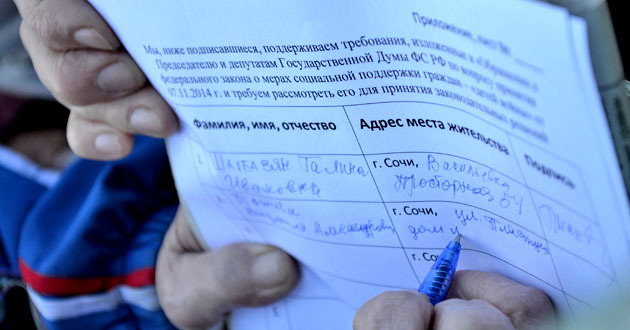 Приложение, лист №
Мы, ниже подписавшиеся, поддерживаем требования, изложенные в «Обращении к
Председателю и депутатам Государственной Думы ФС РФ по вопросу принятия
федерального закона о мерах социальной поддержки граждан – «детей войны» от
07.11.2014 г. и требуем рассмотреть его для принятия законодательных решений
Фамилия, имя, отчество Адрес места жительства Подпись
1. Галина г. Сочи, Васильевка
Ивановна Просторная 54
2. Александровна г. Сочи, ул.
дом
г. Сочи